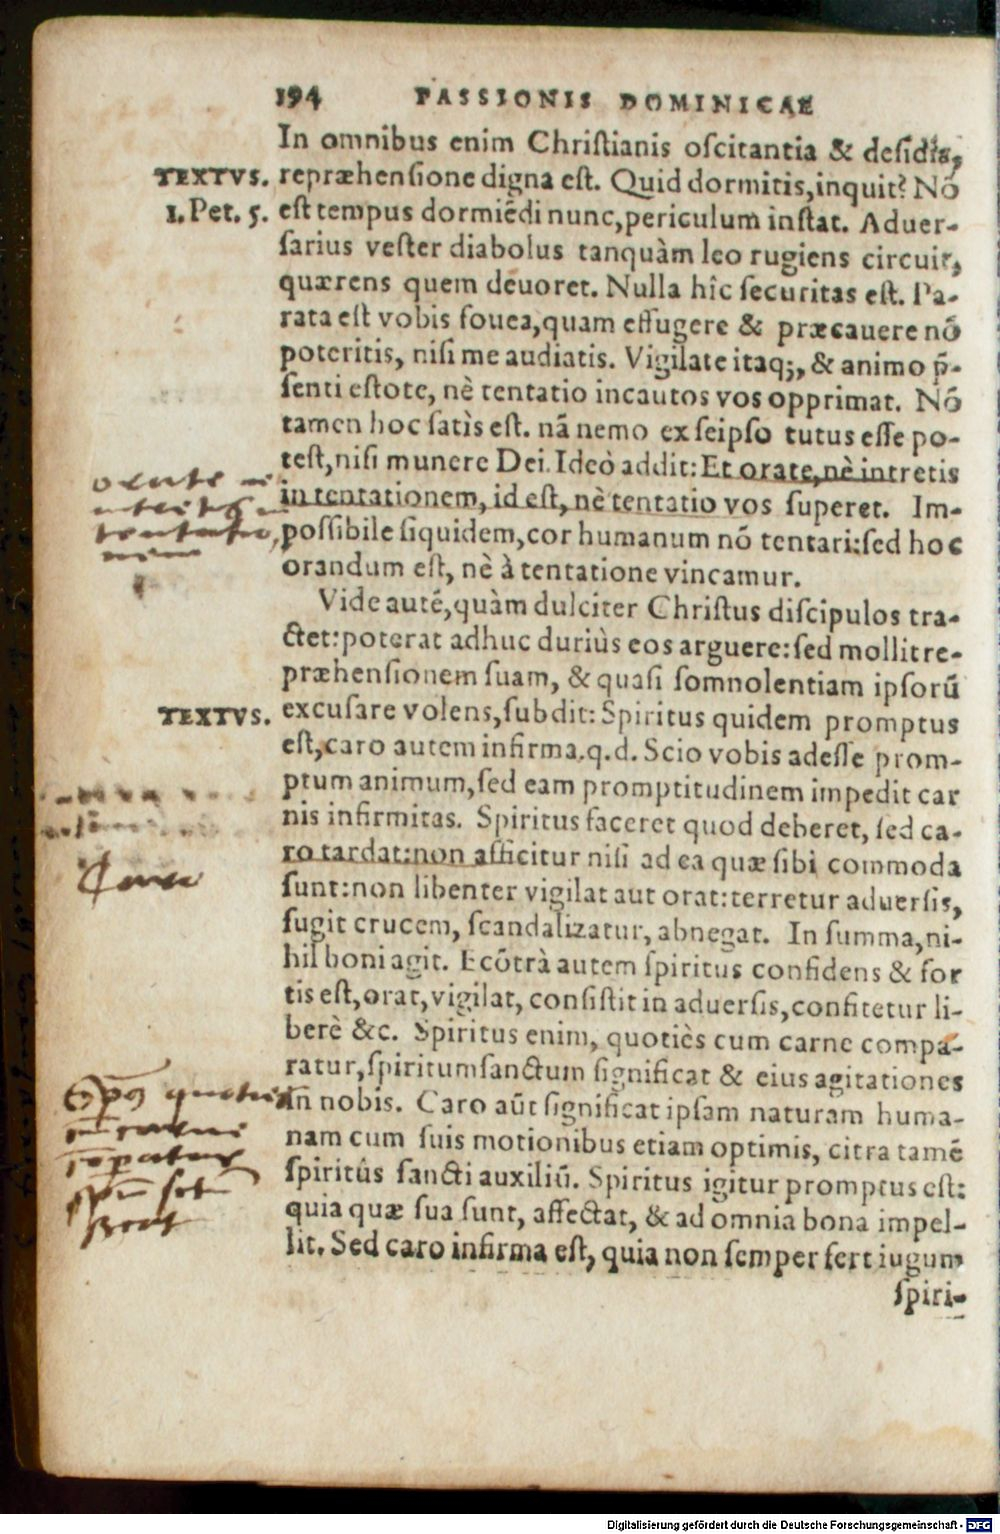 194 PASSIONIS DOMINICAE
In omnibus enim Chriſtianis oſcitantia & deſidia,
TEXTVS. repræhenſione digna eſt. Quid dormitis, inquit? Nō
1. Pet. 5. eſt tempus dormiēdi nunc, periculum inſtat. Aduer-
ſarius veſter diabolus tanquàm leo rugiens circuit,
quærens quem deuoret. Nulla hîc ſecuritas eſt. Pa-
rata eſt vobis fouea, quam effugere & præcauere nō
poteritis, niſi me audiatis. Vigilate itaq;, & animo p̄-
ſenti eſtote, nè tentatio incautos vos opprimat. Nō
tamen hoc ſatìs eſt. nā nemo ex ſeipſo tutus eſſe po-
teſt, niſi munere Dei. Ideò addit: Et orate, nè intretis
in tentationem, id eſt, nè tentatio vos ſuperet. Im-
poſſibile ſiquidem, cor humanum nō tentari: ſed hoc
orandum eſt, nè à tentatione vincamur.
orate n
tentatio
nem
Vide autē, quàm dulciter Chriſtus diſcipulos tra-
ctet: poterat adhuc duriùs eos arguere: ſed mollit re-
præhenſionem ſuam, & quaſi ſomnolentiam ipſorū
TEXTVS. excuſare volens, ſubdit: Spiritus quidem promptus
eſt, caro autem infirma. q. d. Scio vobis adeſſe prom-
ptum animum, ſed eam promptitudinem impedit car
nis infirmitas. Spiritus faceret quod deberet, ſed ca-
ro tardat: non afficitur niſi ad ea quæ ſibi commoda
ſunt: non libenter vigilat aut orat: terretur aduerſis,
fugit crucem, ſcandalizatur, abnegat. In ſumma, ni-
hil boni agit. Ecōtrà autem ſpiritus confidens & for
tis eſt, orat, vigilat, conſiſtit in aduerſis, confitetur li-
berè &c. Spiritus enim, quotiès cum carne compa-
ratur, ſpiritum ſanctum ſignificat & eius agitationes
in nobis. Caro aūt ſignificat ipſam naturam huma-
nam cum ſuis motionibus etiam optimis, citra tamē
ſpiritûs ſancti auxiliū. Spiritus igitur promptus eſt:
quia quæ ſua ſunt, affectat, & ad omnia bona impel-
lit. Sed caro infirma eſt, quia non ſemper fert iugum
ſpiri-
Caro
quoties
Digitalisierung gefördert durch die Deutsche Forschungsgemeinschaft - DFG